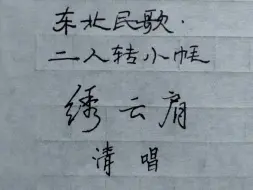 东北民歌·
二人转小帽
绣云肩
清唱